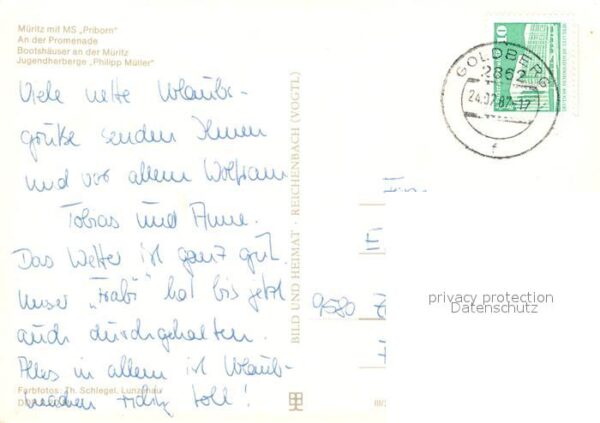 Müritz mit MS „Priborn"
An der Promenade
Bootshäuser an der Müritz
Jugendherberge „Philipp Müller"
Viele nette Urlaubs-
grüße senden Ihnen
und vor allem Wolfram
Tobias und Anne.
Das Wetter ist ganz gut.
Unser „Trabi" hat bis jetzt
auch durchgehalten.
Alles in allem ist Urlaub-
machen richtig toll!
Farbfotos: Th. Schlegel, Lunzenau
BILD UND HEIMAT · REICHENBACH (VOGTL)
10
GOLDBERG
2862
24.07.87-17
f
9580
privacy protection
Datenschutz